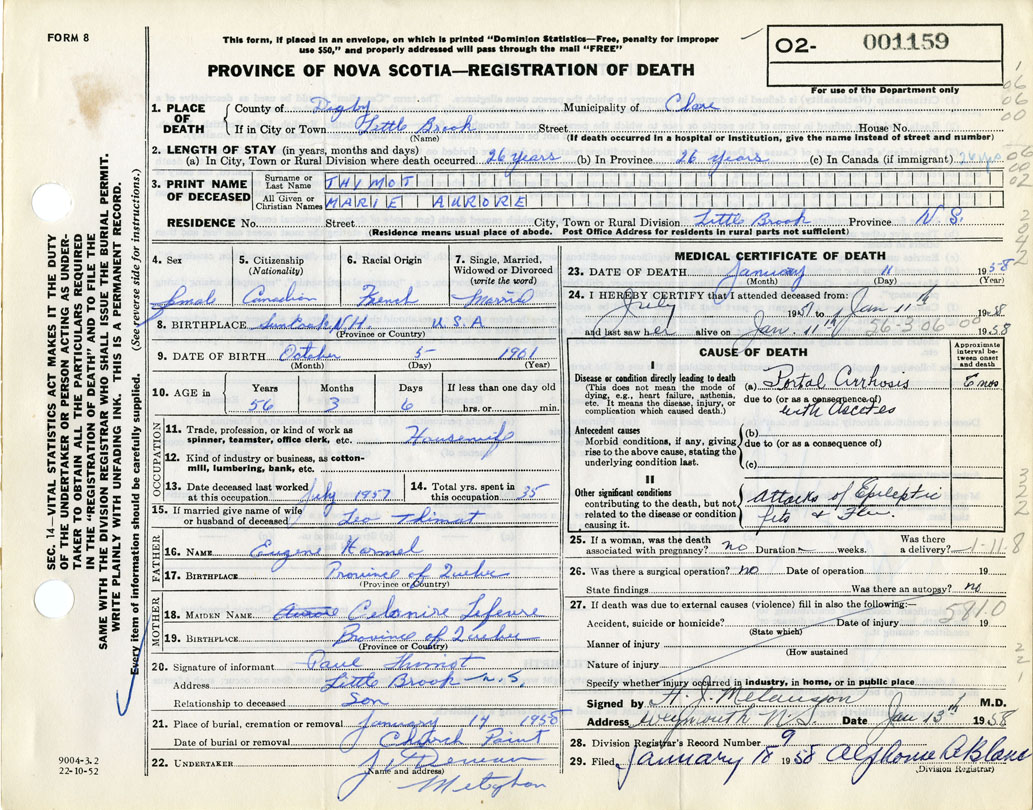 FORM 8
This form, if placed in an envelope, on which is printed "Dominion Statistics—Free, penalty for improper
use $50," and properly addressed will pass through the mail "FREE"
PROVINCE OF NOVA SCOTIA—REGISTRATION OF DEATH
O2- 001159
For use of the Department only
1. PLACE OF DEATH
County of Digby Municipality of Clare
If in City or Town Little Brook Street House No.
(Name) (If death occurred in a hospital or institution, give the name instead of street and number)
2. LENGTH OF STAY (in years, months and days)
(a) In City, Town or Rural Division where death occurred 26 years (b) In Province 26 years (c) In Canada (if immigrant)
3. PRINT NAME OF DECEASED
Surname or Last Name THIMOT
All Given or Christian Names MARIE AURORE
RESIDENCE No. Street City, Town or Rural Division Little Brook Province N.S.
(Residence means usual place of abode. Post Office Address for residents in rural parts not sufficient)
4. Sex
5. Citizenship (Nationality) Canadian
6. Racial Origin French
7. Single, Married, Widowed or Divorced (write the word) Married
8. BIRTHPLACE N.H. U.S.A
(Province or Country)
9. DATE OF BIRTH October 5 1901
(Month) (Day) (Year)
10. AGE in Years 56 Months 3 Days 6 If less than one day old hrs. or min.
OCCUPATION
11. Trade, profession, or kind of work as spinner, teamster, office clerk, etc. Housewife
12. Kind of industry or business, as cotton-mill, lumbering, bank, etc.
13. Date deceased last worked at this occupation July 1957 14. Total yrs. spent in this occupation 35
15. If married give name of wife or husband of deceased Leo Thimot
FATHER
16. NAME Eugene Hamel
17. BIRTHPLACE Province of Quebec
(Province or Country)
MOTHER
18. MAIDEN NAME Celanire Lefevre
19. BIRTHPLACE Province of Quebec
(Province or Country)
20. Signature of informant Paul Thimot
Address Little Brook N.S.
Relationship to deceased Son
21. Place of burial, cremation or removal January 14 1958
Date of burial or removal Church Point
22. UNDERTAKER
(Name and address)
Meteghan
9004-3.2
22-10-52
SEC. 14—VITAL STATISTICS ACT MAKES IT THE DUTY
OF THE UNDERTAKER OR PERSON ACTING AS UNDER-
TAKER TO OBTAIN ALL THE PARTICULARS REQUIRED
IN THE "REGISTRATION OF DEATH" AND TO FILE THE
SAME WITH THE DIVISION REGISTRAR WHO SHALL ISSUE THE BURIAL PERMIT.
WRITE PLAINLY WITH UNFADING INK. THIS IS A PERMANENT RECORD.
Every item of information should be carefully supplied. (See reverse side for instructions.)
MEDICAL CERTIFICATE OF DEATH
23. DATE OF DEATH January 11 1958
(Month) (Day) (Year)
24. I HEREBY CERTIFY that I attended deceased from:
July 1957 to Jan 11th 1958
and last saw her alive on Jan. 11th 1958
56-3-06-00
CAUSE OF DEATH
Approximate interval between onset and death
I
Disease or condition directly leading to death
(This does not mean the mode of dying, e.g., heart failure, asthenia, etc. It means the disease, injury, or complication which caused death.)
(a) Portal Cirrhosis 6 mos
due to (or as a consequence of)
with Ascites
Antecedent causes
Morbid conditions, if any, giving rise to the above cause, stating the underlying condition last.
(b)
due to (or as a consequence of)
(c)
II
Other significant conditions
contributing to the death, but not related to the disease or condition causing it.
Attacks of Epileptic
fits & Flu.
25. If a woman, was the death associated with pregnancy? no Duration weeks. Was there a delivery?
1-11-8
26. Was there a surgical operation? no Date of operation 19
State findings Was there an autopsy? no
27. If death was due to external causes (violence) fill in also the following:—
581.0
Accident, suicide or homicide? Date of injury 19
(State which)
Manner of injury
(How sustained
Nature of injury
Specify whether injury occurred in industry, in home, or in public place
Signed by H. J. Melanson M.D.
Address Weymouth N.S. Date Jan 13th 1958
28. Division Registrar's Record Number 9
29. Filed January 18 1958 Alphonse LeBlanc
(Division Registrar)